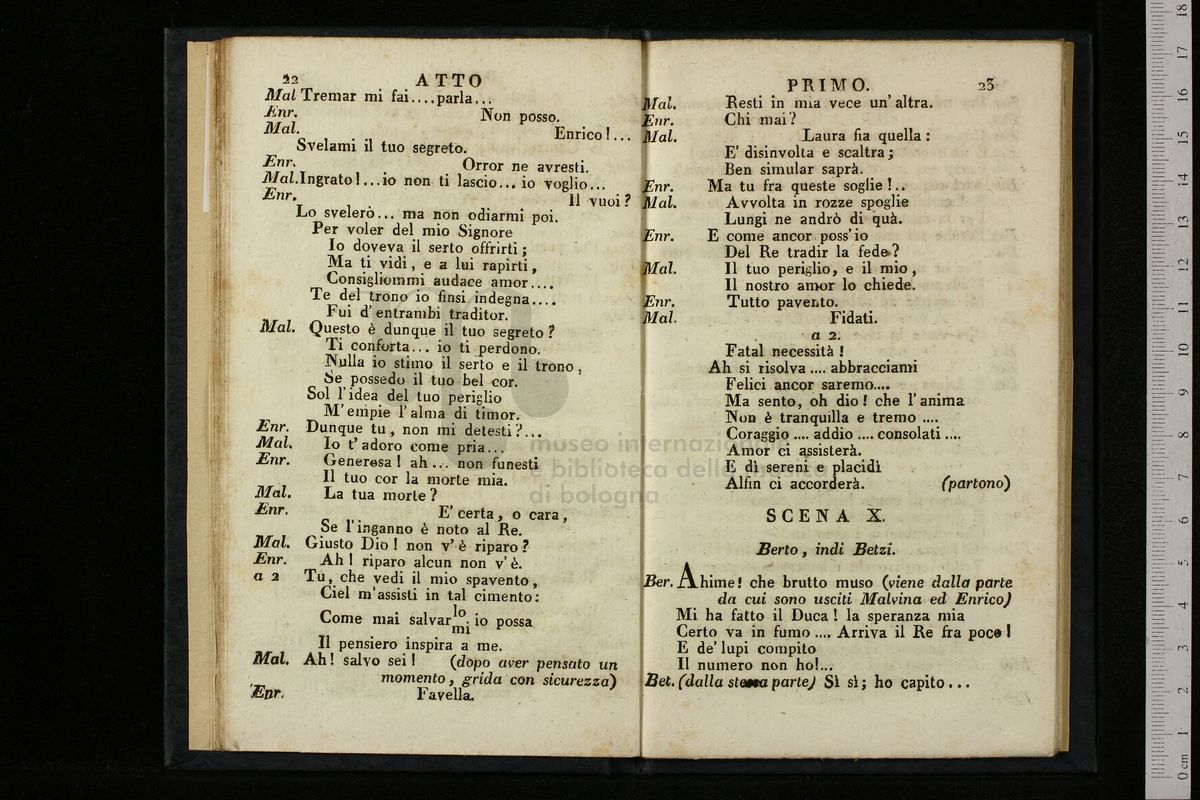 22 ATTO
Mal Tremar mi fai....parla...
Enr. Non posso.
Mal. Enrico!...
Svelami il tuo segreto.
Enr. Orror ne avresti.
Mal. Ingrato!...io non ti lascio... io voglio...
Enr. Il vuoi?
Lo svelerò... ma non odiarmi poi.
Per voler del mio Signore
Io doveva il serto offrirti;
Ma ti vidi, e a lui rapirti,
Consigliommi audace amor....
Te del trono io finsi indegna....
Fui d'entrambi traditor.
Mal. Questo è dunque il tuo segreto?
Ti conforta... io ti perdono.
Nulla io stimo il serto e il trono,
Se possedo il tuo bel cor.
Sol l'idea del tuo periglio
M'empie l'alma di timor.
Enr. Dunque tu, non mi detesti?...
Mal. Io t'adoro come pria...
Enr. Generosa! ah... non funesti
Il tuo cor la morte mia.
Mal. La tua morte?
Enr. E' certa, o cara,
Se l'inganno è noto al Re.
Mal. Giusto Dio! non v'è riparo?
Enr. Ah! riparo alcun non v'è.
a 2 Tu, che vedi il mio spavento,
Ciel m'assisti in tal cimento:
Come mai salvar lo/mi io possa
Il pensiero inspira a me.
Mal. Ah! salvo sei! (dopo aver pensato un
momento, grida con sicurezza)
Enr. Favella.
PRIMO. 23
Mal. Resti in mia vece un'altra.
Enr. Chi mai?
Mal. Laura fia quella:
E' disinvolta e scaltra;
Ben simular saprà.
Enr. Ma tu fra queste soglie!..
Mal. Avvolta in rozze spoglie
Lungi ne andrò di quà.
Enr. E come ancor poss'io
Del Re tradir la fede?
Mal. Il tuo periglio, e il mio,
Il nostro amor lo chiede.
Enr. Tutto pavento.
Mal. Fidati.
a 2.
Fatal necessità!
Ah si risolva .... abbracciami
Felici ancor saremo....
Ma sento, oh dio! che l'anima
Non è tranquilla e tremo ....
Coraggio .... addio .... consolati ....
Amor ci assisterà.
E dì sereni e placidi
Alfin ci accorderà. (partono)
SCENA X.
Berto, indi Betzi.
Ber. Ahime! che brutto muso (viene dalla parte
da cui sono usciti Malvina ed Enrico)
Mi ha fatto il Duca! la speranza mia
Certo va in fumo .... Arriva il Re fra poco!
E de' lupi compito
Il numero non ho!...
Bet. (dalla stessa parte) Sì sì; ho capito...
museo internazionale
e biblioteca della musica
di bologna
0 cm 1 2 3 4 5 6 7 8 9 10 11 12 13 14 15 16 17 18